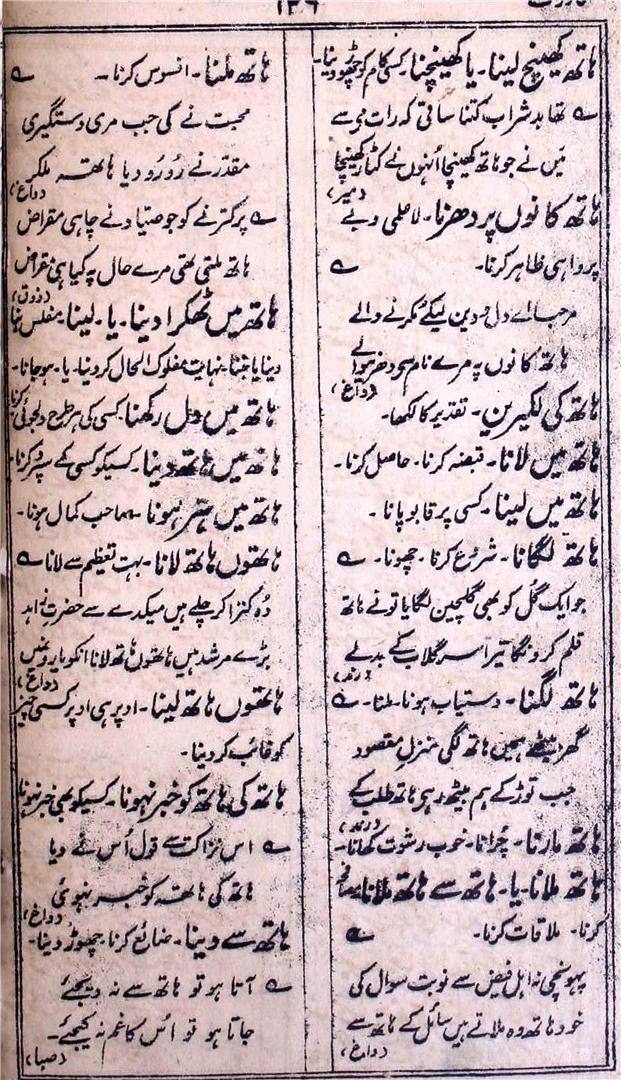 ۱۳۶
ہاتھ کھینچ لینا۔ یا کھینچنا۔ کسی کام کو چھوڑ دینا۔
تھا بد شراب کتنا ساقی کہ رات مے سے
میں نے جو ہاتھ کھینچا اُنہوں نے کٹار کھینچا
(میر)
ہاتھ کانوں پر دھرنا۔ لاعلمی و بے
پروا ہی ظاہر کرنا۔
مرحبا اے دل و دین لیکے مُکرنے والے
ہاتھ کانوں پہ مرے نام سے دھرنے والے
(داغ)
ہاتھ کی لکیریں۔ تقدیر کا لکھا۔
ہاتھ میں لانا۔ قبضہ کرنا۔ حاصل کرنا۔
ہاتھ میں لینا۔ کسی پر قابو پانا۔
ہاتھ لگانا۔ شروع کرنا۔ چھونا۔
جو ایک گُل کو بھی گلچین لگایا تو نے ہاتھ
قلم کرونگا تیرا سر گلاب کے بدلے
(رند)
ہاتھ لگنا۔ دستیاب ہونا۔ ملنا۔
گھر بیٹھے ہمیں ہاتھ لگی منزلِ مقصود
جب توڑ کے ہم بیٹھ رہے ہاتھ طلب کے
(رند)
ہاتھ مارنا۔ چُرانا۔ خوب رشوت کھانا۔
ہاتھ ملانا۔ یا۔ ہاتھ سے ہاتھ ملانا۔
کرنا۔ ملاقات کرنا۔
پہونچی نہ اہل فیض سے نوبت سوال کی
خود ہاتھ وہ ملاتے ہیں سائل کے ہاتھ سے
(داغ)
ہاتھ ملنا۔ افسوس کرنا۔
محبت نے کی جب مری دستگیری
مقدّر نے رُو رُو دیا ہاتھ ملکر
(داغ)
پر کترنے کو جو صیّاد نے چاہی مقراض
ہاتھ ملتی تھی مرے حال پہ کیا ہی مقراض
(ذوق)
ہاتھ میں ٹھکرا دینا۔ یا۔ لینا۔ مفلس بنا
دینا یا بننا۔ نہایت مفلوک الحال کر دینا۔ یا۔ ہو جانا۔
ہاتھ میں دل رکھنا۔ کسی کی ہر طرح دلجوئی کرنا
ہاتھ میں ہاتھ دینا۔ کسیکو کسی کے سپرد کرنا۔
ہاتھ میں ہنر ہونا۔ صاحب کمال ہونا۔
ہاتھوں ہاتھ لانا۔ بہت تعظیم سے لانا
وُہ کترا کر چلے ہیں میکدے سے حضرت زاہد
بڑے مرشد ہیں ہاتھوں ہاتھ لانا انکو یارو
(داغ)
ہاتھوں ہاتھ لینا۔ اوپر ہی اوپر کسی چیز
کو غائب کر دینا۔
ہاتھ کی ہاتھ کو خبر نہونا۔ کسیکو بھی خبر نہونا
اس نزاکت سے قول اُس نے دیا
ہاتھ کی ہاتھ کو خبر نہوئی
(داغ)
ہاتھ سے دینا۔ ضائع کرنا۔ چھوڑ دینا۔
آتا ہو تو ہاتھ سے نہ دیجئے
جاتا ہو تو اُس کا غم نہ کیجئے۔
(صبا)